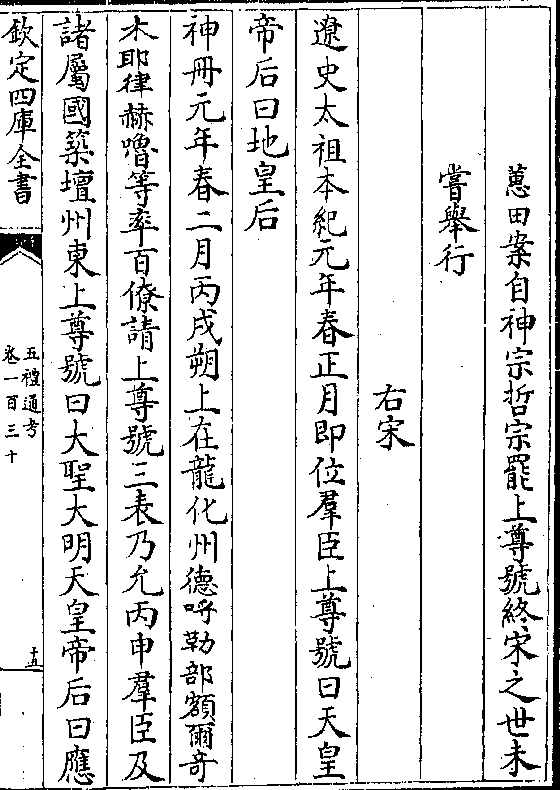 蕙田案自神宗哲宗罷上尊號終宋之世未
嘗舉行
右宋
遼史太祖本紀元年春正月即位羣臣上尊號曰天皇
帝后曰地皇后
神册元年春二月丙戌朔上在龍化州德呼勒部額爾竒
木耶律赫嚕等率百僚請上尊號三表乃允丙申羣臣及
諸屬國築壇州東上尊號曰大聖大明天皇帝后曰應
欽定四庫全書
五禮通考
卷一百三十
十五